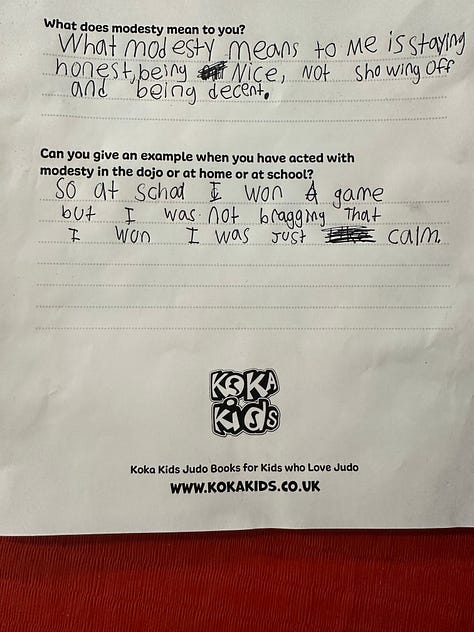 What does modesty mean to you?
What modesty means to me is staying
honest, being Nice, Not showing off
and being decent.
Can you give an example when you have acted with
modesty in the dojo or at home or at school?
So at school I won A game
but I was not bragging that
I won I was just calm.
KOKA
KidS
Koka Kids Judo Books for Kids who Love Judo
WWW.KOKAKIDS.CO.UK